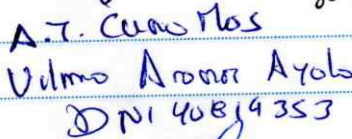 A.T. Curo Mos
Vilma Aronés Ayala
DNI 40819353